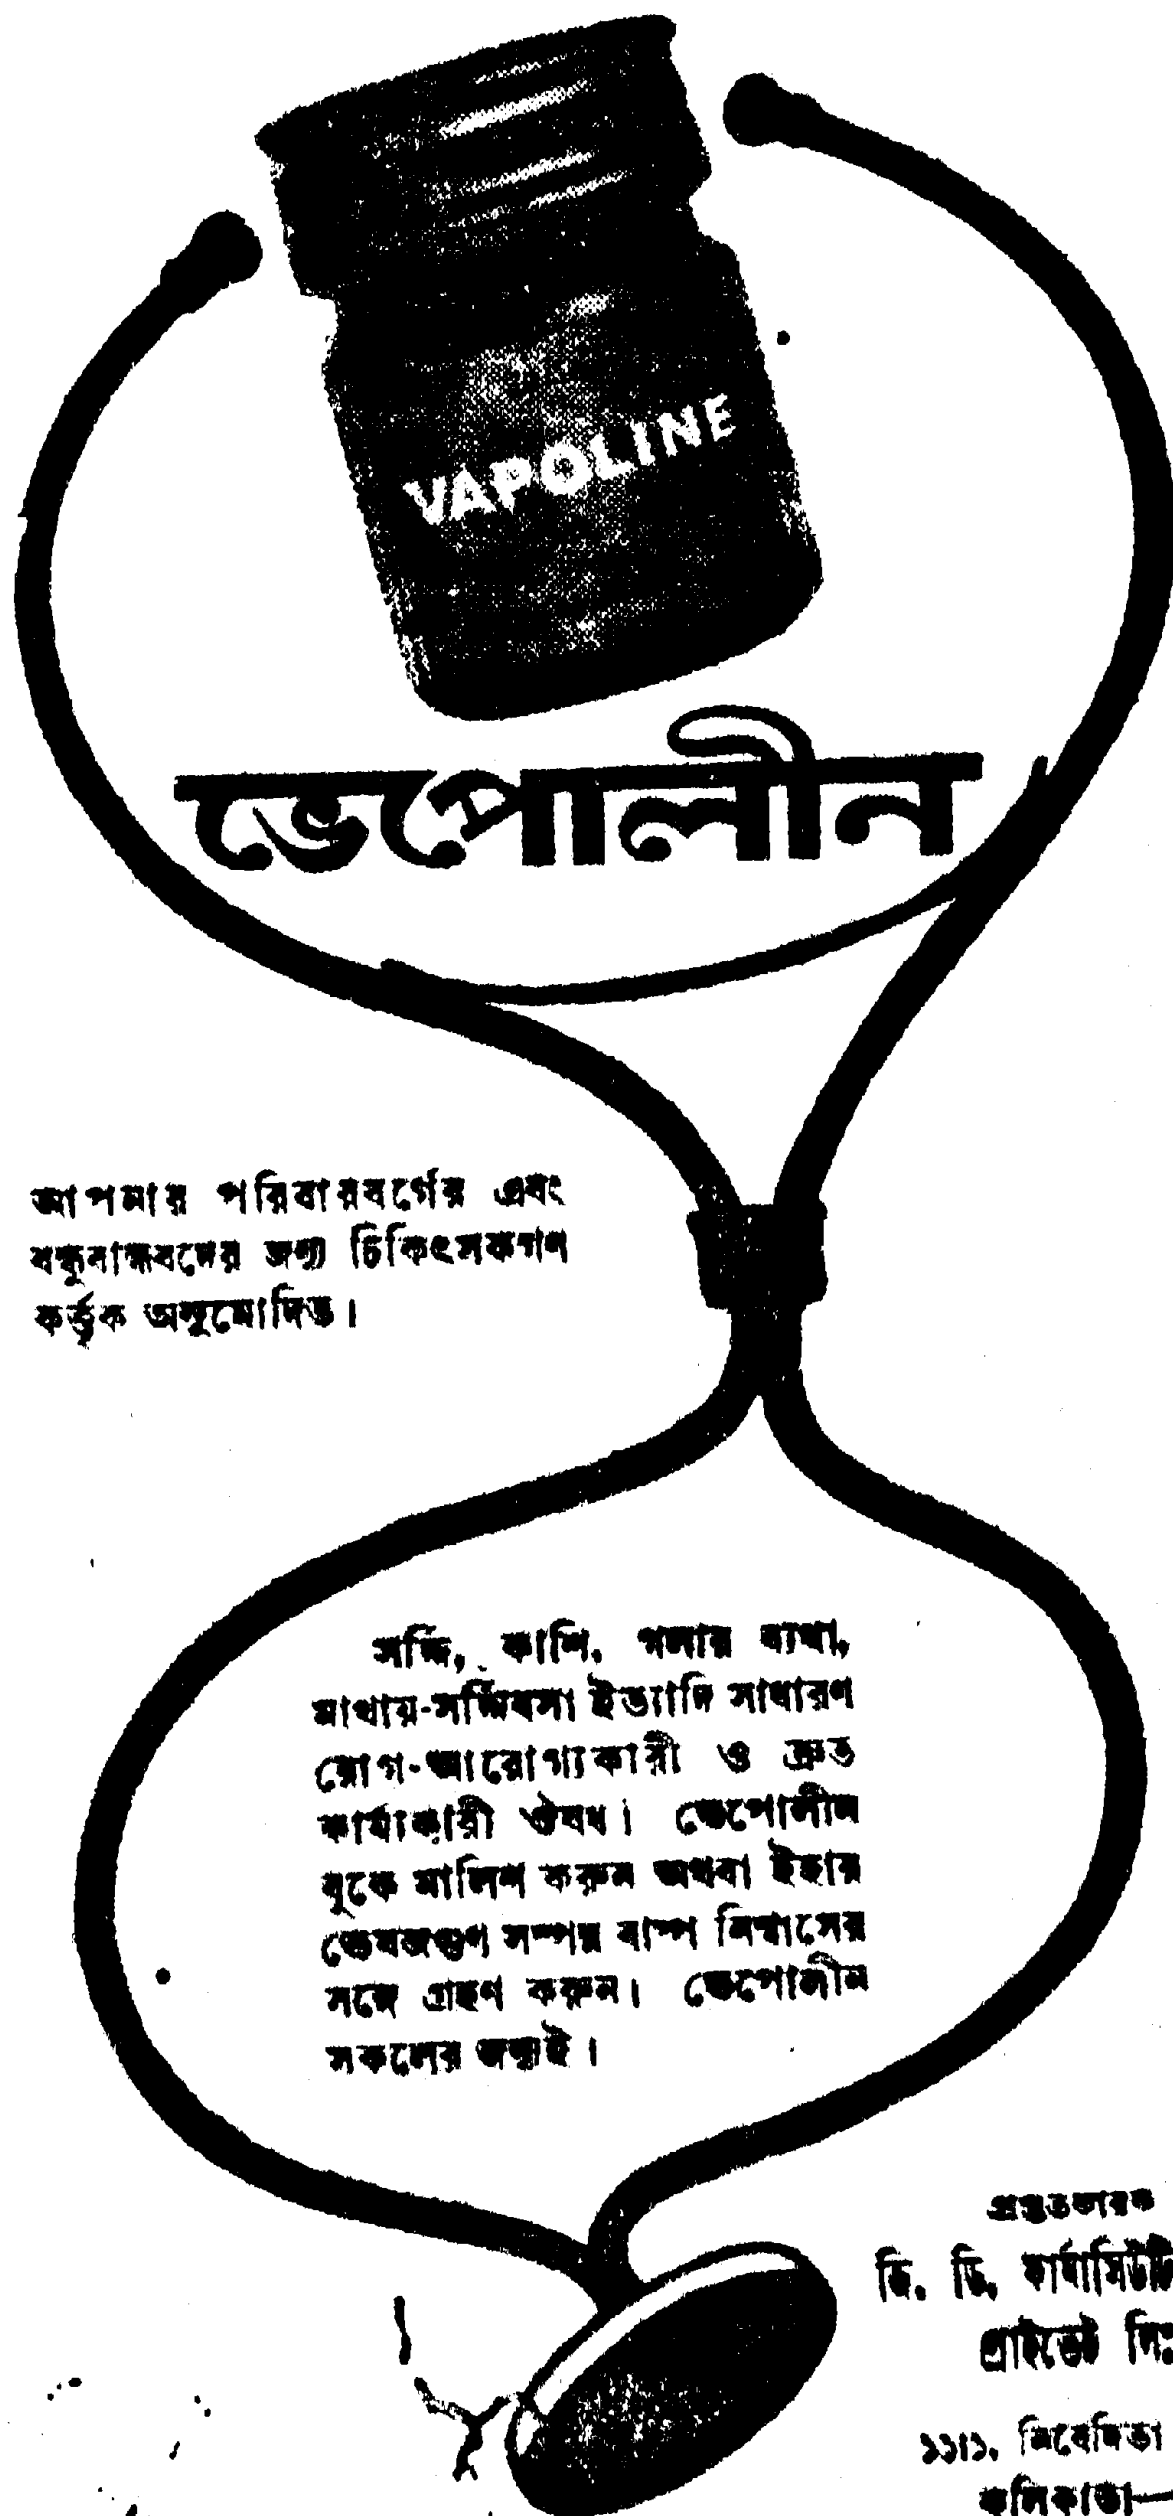 VAPOLINE
ভেপোলীন
আপনার পরিবারবর্গের এবং
বন্ধুবান্ধবদের জন্য চিকিৎসকগণ
কর্তৃক অনুমোদিত।
সর্দ্দি, কাশি, গলার ব্যথা,
মাথায়-সর্দ্দিবসা ইত্যাদি সাধারণ
রোগ-আরোগ্যকারী ও দ্রুত
কার্য্যকারী ঔষধ। ভেপোলীন
বুকে মালিশ করুন অথবা ইহার
ভেষজগুণ সম্পন্ন বাষ্প নিশ্বাসের
সঙ্গে গ্রহণ করুন। ভেপোলীন
সকলের জন্যই।
প্রস্তুতকারক
ডি. ডি.
প্রাইভেট লিঃ
নিবেদিতা
কলিকাতা—